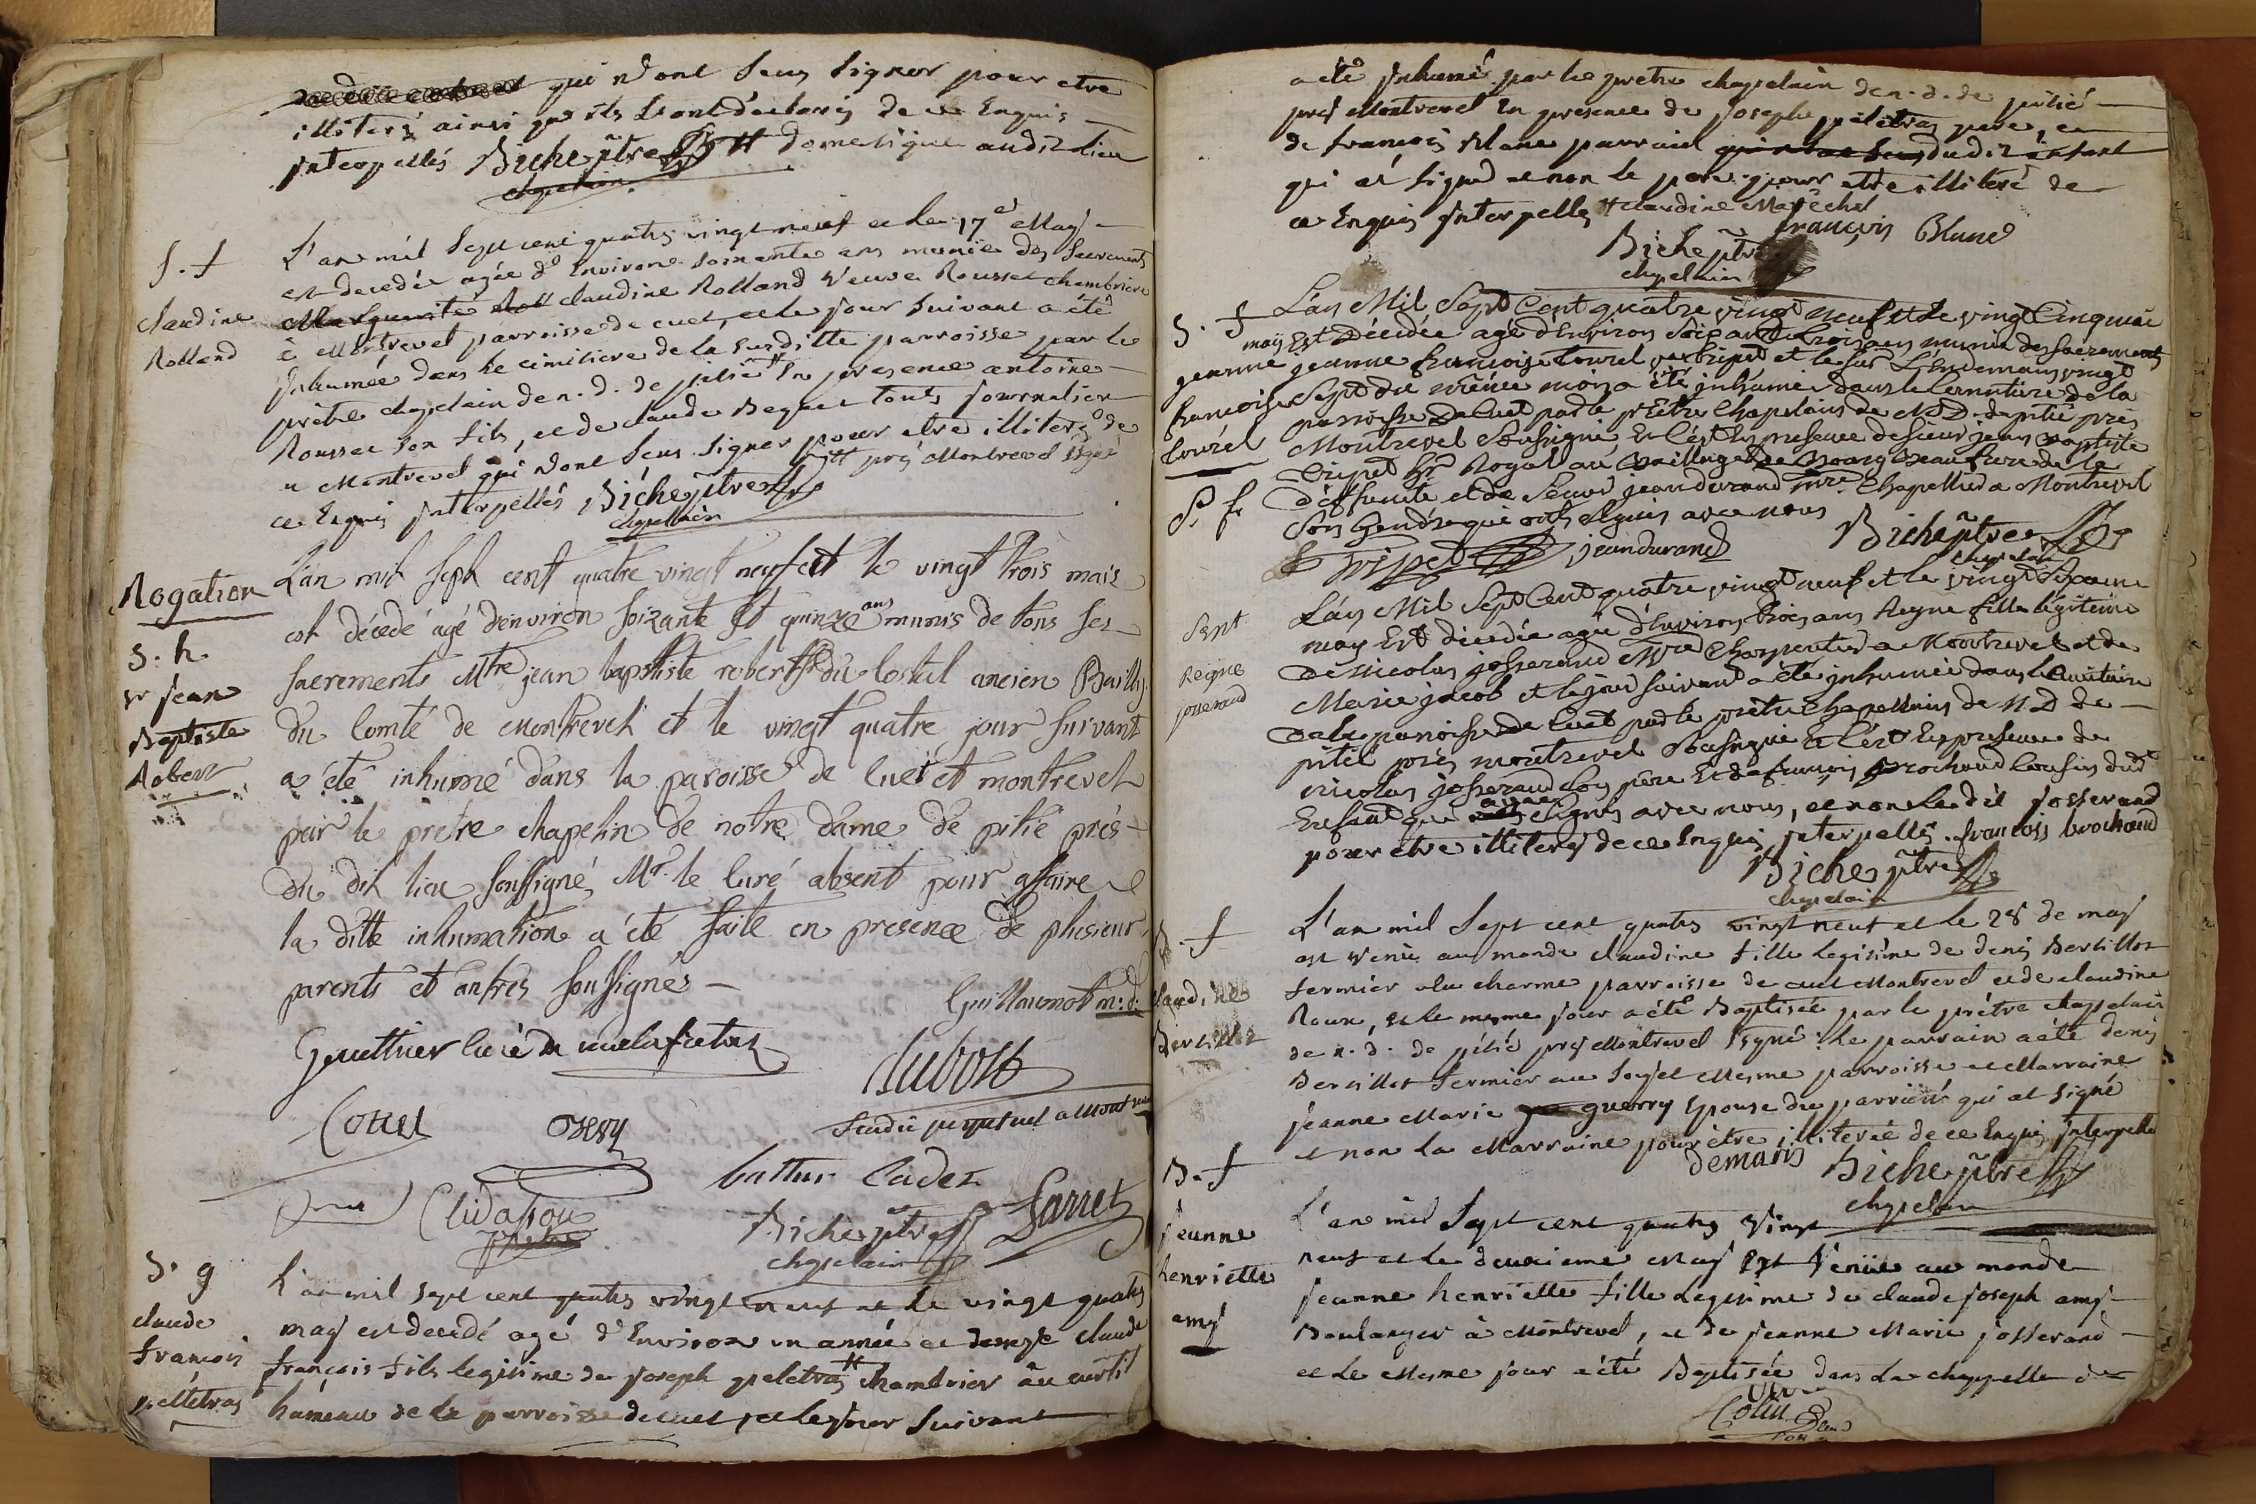 qui n'ont sceu signer pour etre
illiterés ainsi qu'ils l'ont déclarés de ce Enquis
interpellés Biche ptre # domestique audit lieu
chapelain
S. f
Claudine
Rolland
L'an mil sept cent quatre vingt neuf et le 17e May
est decedée agée d'Environ soixante ans munie des sacrements
Marguerite claudine Rolland veuve Rousset chambriere
à Montrevel parroisse de cuet, et le jour suivant a été
inhumée dans le cimitiere de la susditte parroisse par le
prêtre chapelain de n. d. de pitié # En presence antoine
Rousset son fils, et de claude Beguet touts journalier
a Montrevel qui n'ont sceus signer pour etre illiterés de
ce Enquis interpellés Biche ptre # près Montrevel signé
chapelain
Rogation
S. h.
sr jean
Baptiste
Robert
L'an mil sept cent quatre vingt neuf et le vingt trois mais
est décedé agé d'environ soixante et quinze ans munis de tous ses
sacrements Mtre jean baptiste robert sr du Costal ancien Bailly
du Comté de Montrevel et le vingt quatre jour suivant
a été inhumé dans la paroisse de Cuet et montrevel
par le prêtre chapelin de notre dame de pitié près
du dit lieu soussigné, Mr. le Curé absent pour affaire
la ditte inhumation a été faite en presence de plusieur
parents et autres soussignés
Guillaumot m: d:
dubost
Sindic perpetuel a Montrevel
Cottet
battur Cadet
Biche ptre
chapelain
Farret
S. g
claude
françois
pelletras
L'an mil sept cent quatre vingt neuf et le vingt quatre
may est decedé agé d'Environ un année et demyk claude
françois fils legitime de joseph peletras # chambrier au curtil
hameau de la parroisse de cuet, et le jour suivant
a été inhumé par le prêtre chapelain de n. d. de pitié
près Montrevel En presence de joseph peletras pere, et
de françois blanc parrain dudit enfant
qui at signé et non le pere pour etre illiteré de
ce Enquis interpellés # claudine Maréchal
françois Blanc
Biche ptre
chapelain
S. f
jeanne
francoise
Courel
S. f.
L'an Mil Sept Cent quatre vingt neuf et le vingt Cinq
may Est décédée agé d'Environ soixante trois ans munie des sacrements
jeanne françoise Courel et le jour L'Endemain vingt
Sept du même mois a été inhumée dans le Cemetiere de la
paroisse de Cuet par le prEtre Chapelains de N. D. de pitié près
Montrevel soussigné, Et C'est En presence de sieur jean Baptiste
Tripet Royal au Baillage de Bourg Beau frere de la
deffunte et de Sieur jean durand mre Chapellier a Montrevel
son Gendre qui ont signés avec nous
Tripet jean durand Biche ptre
chapelain
Sent
Reigne
josserand
L'an Mil Sept Cent quatre vingt neuf et le vingt Sixieme
may Est décédée agée d'Environ trois ans Reyne fille légitime
de Nicolas josserand Mtre Charpentier a Montrevel et de
Marie jacob et le jour suivant a été inhumée dans le Cimitiere
de la paroisse de Cuet par le prêtre Chapellains de N. D de
pitié près montrevel Soussigné Et C'est En presence de
nicolas josserand son père Et de françois brochand Cousin dudt
Enfant qui signés avec nous, et non le dit josserand
pour etre illiterés de ce Enquis interpellés. françois brochand
Biche ptre
chapelain
B. f
claudine
Bersillot
L'an mil sept cent quatre vingt neuf et le 28 de may
est venüe au monde claudine fille legitime de denis Bersillot
fermier a la charme parroisse de cuet Montrevel et de claudine
Roux, et le mesme jour a été Baptisée par le prêtre chapelain
de n. d. de pitié près Montrevel signé: le parrain a été denis
Bersillot fermier au Mesme parroisse et Marraine
jeanne Marie guerry Epouse du parrain qui at signé
et non la Marraine pour être illiterée de ce Enquis interpellé
demaris Biche ptre
chapelain
B. f
jeanne
henriette
amy
L'an mil sept cent quatre vingt
neuf et le deuxieme May Est Venüe au monde
jeanne henriette fille legitime de claude joseph amy
Boulanger à Montrevel, et de jeanne Marie josserand
et le Mesme jour a été Baptisée dans la chappelle de